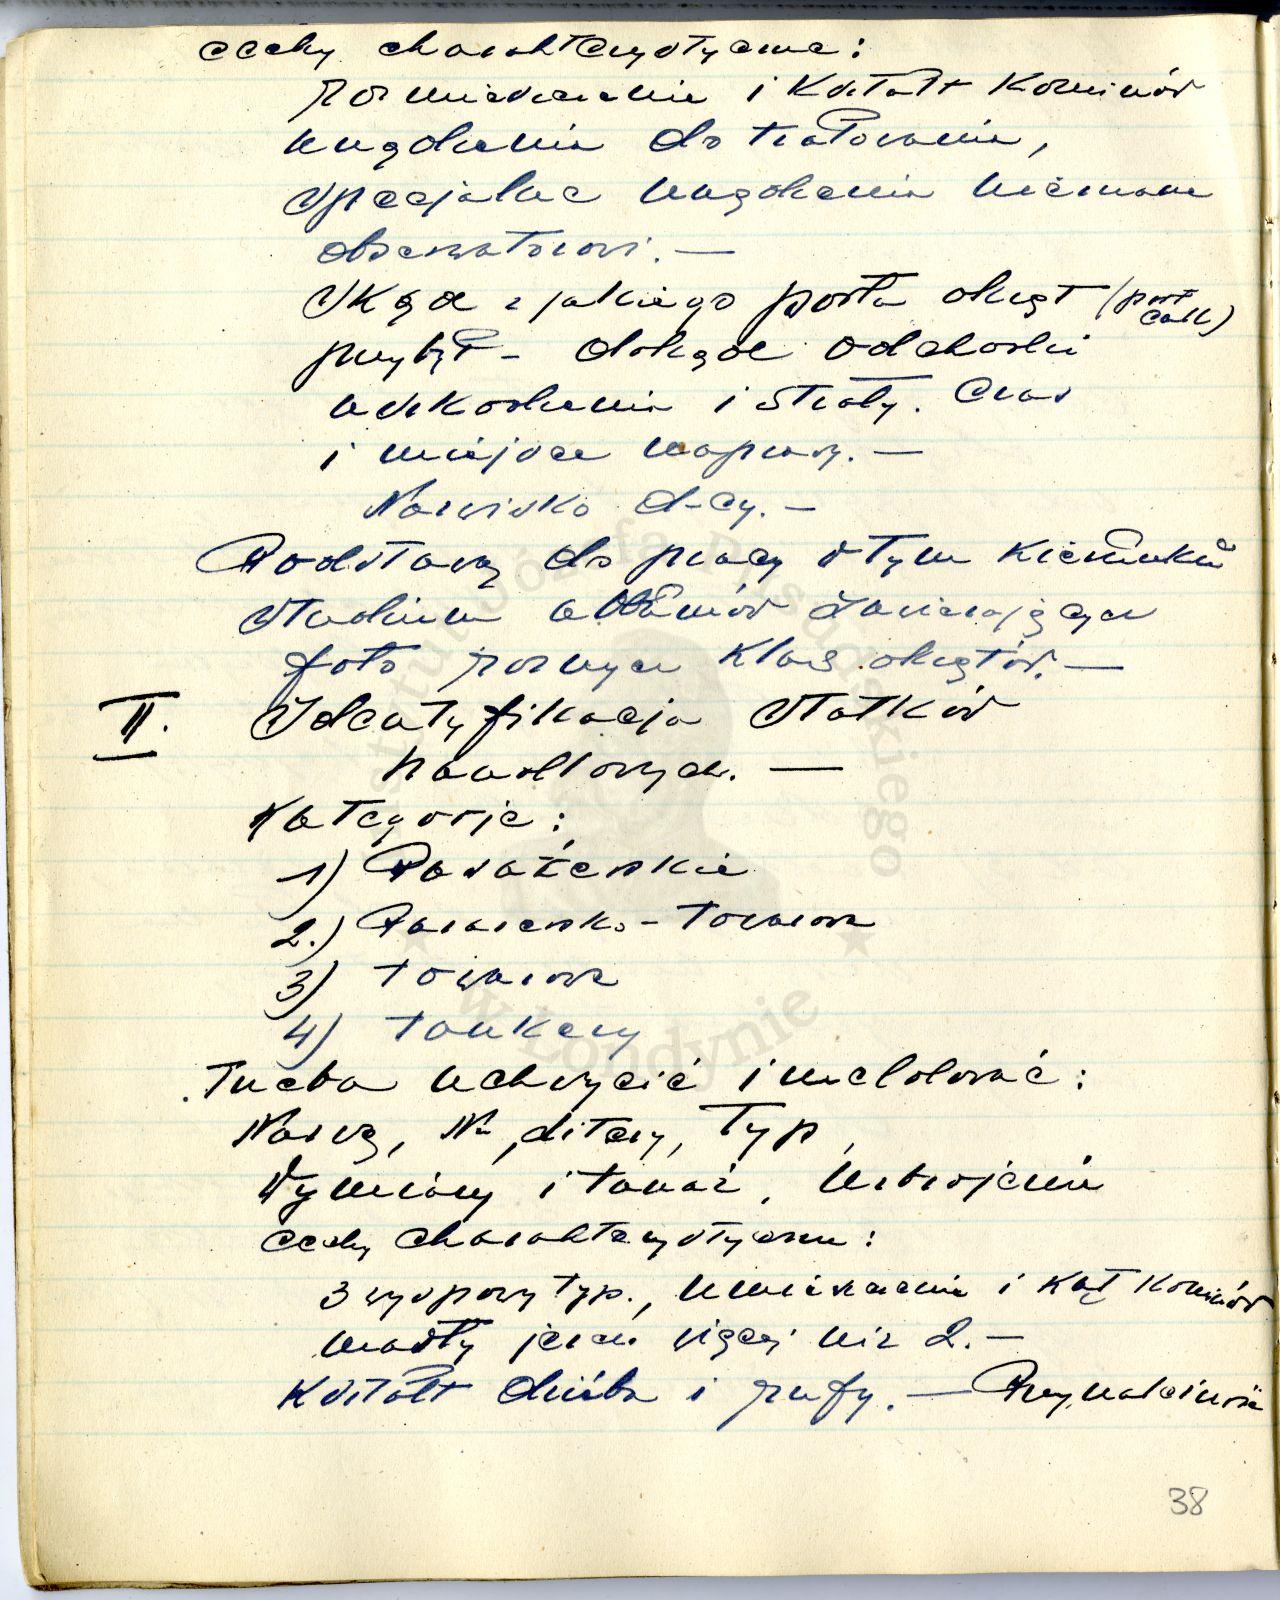 cechy charakterystyczne:
rozmieszczenie i kształt kominów
urządzenia do trałowania,
specjalne urządzenia nieznane
obserwatorowi. —
Skąd z jakiego portu okręt (port
call)
przybył - dokąd odchodzi
uszkodzenia i straty. Czas
i miejsce naprawy. —
Nazwisko d-cy. —
Podstawą do pracy w tym kierunku
studium albumów zawierających
foto różnych klas okrętów. —
II. Identyfikacja statków
handlowych. —
Kategorje:
1) Pasażerskie
2.) Pasażersko - towarowe
3) towarowe
4) tankery
Trzeba uchwycić i meldować:
Nazwę, Nr, litery, Typ,
Wymiary i tonaż, uzbrojenie
cechy charakterystyczne:
3 wyspowy typ., umieszczenie i kąt kominów
maszty jeżeli więcej niż 2. —
Kształt dzioba i rufy. — Przynależność
38
Instytut Józefa Piłsudskiego
w Londynie